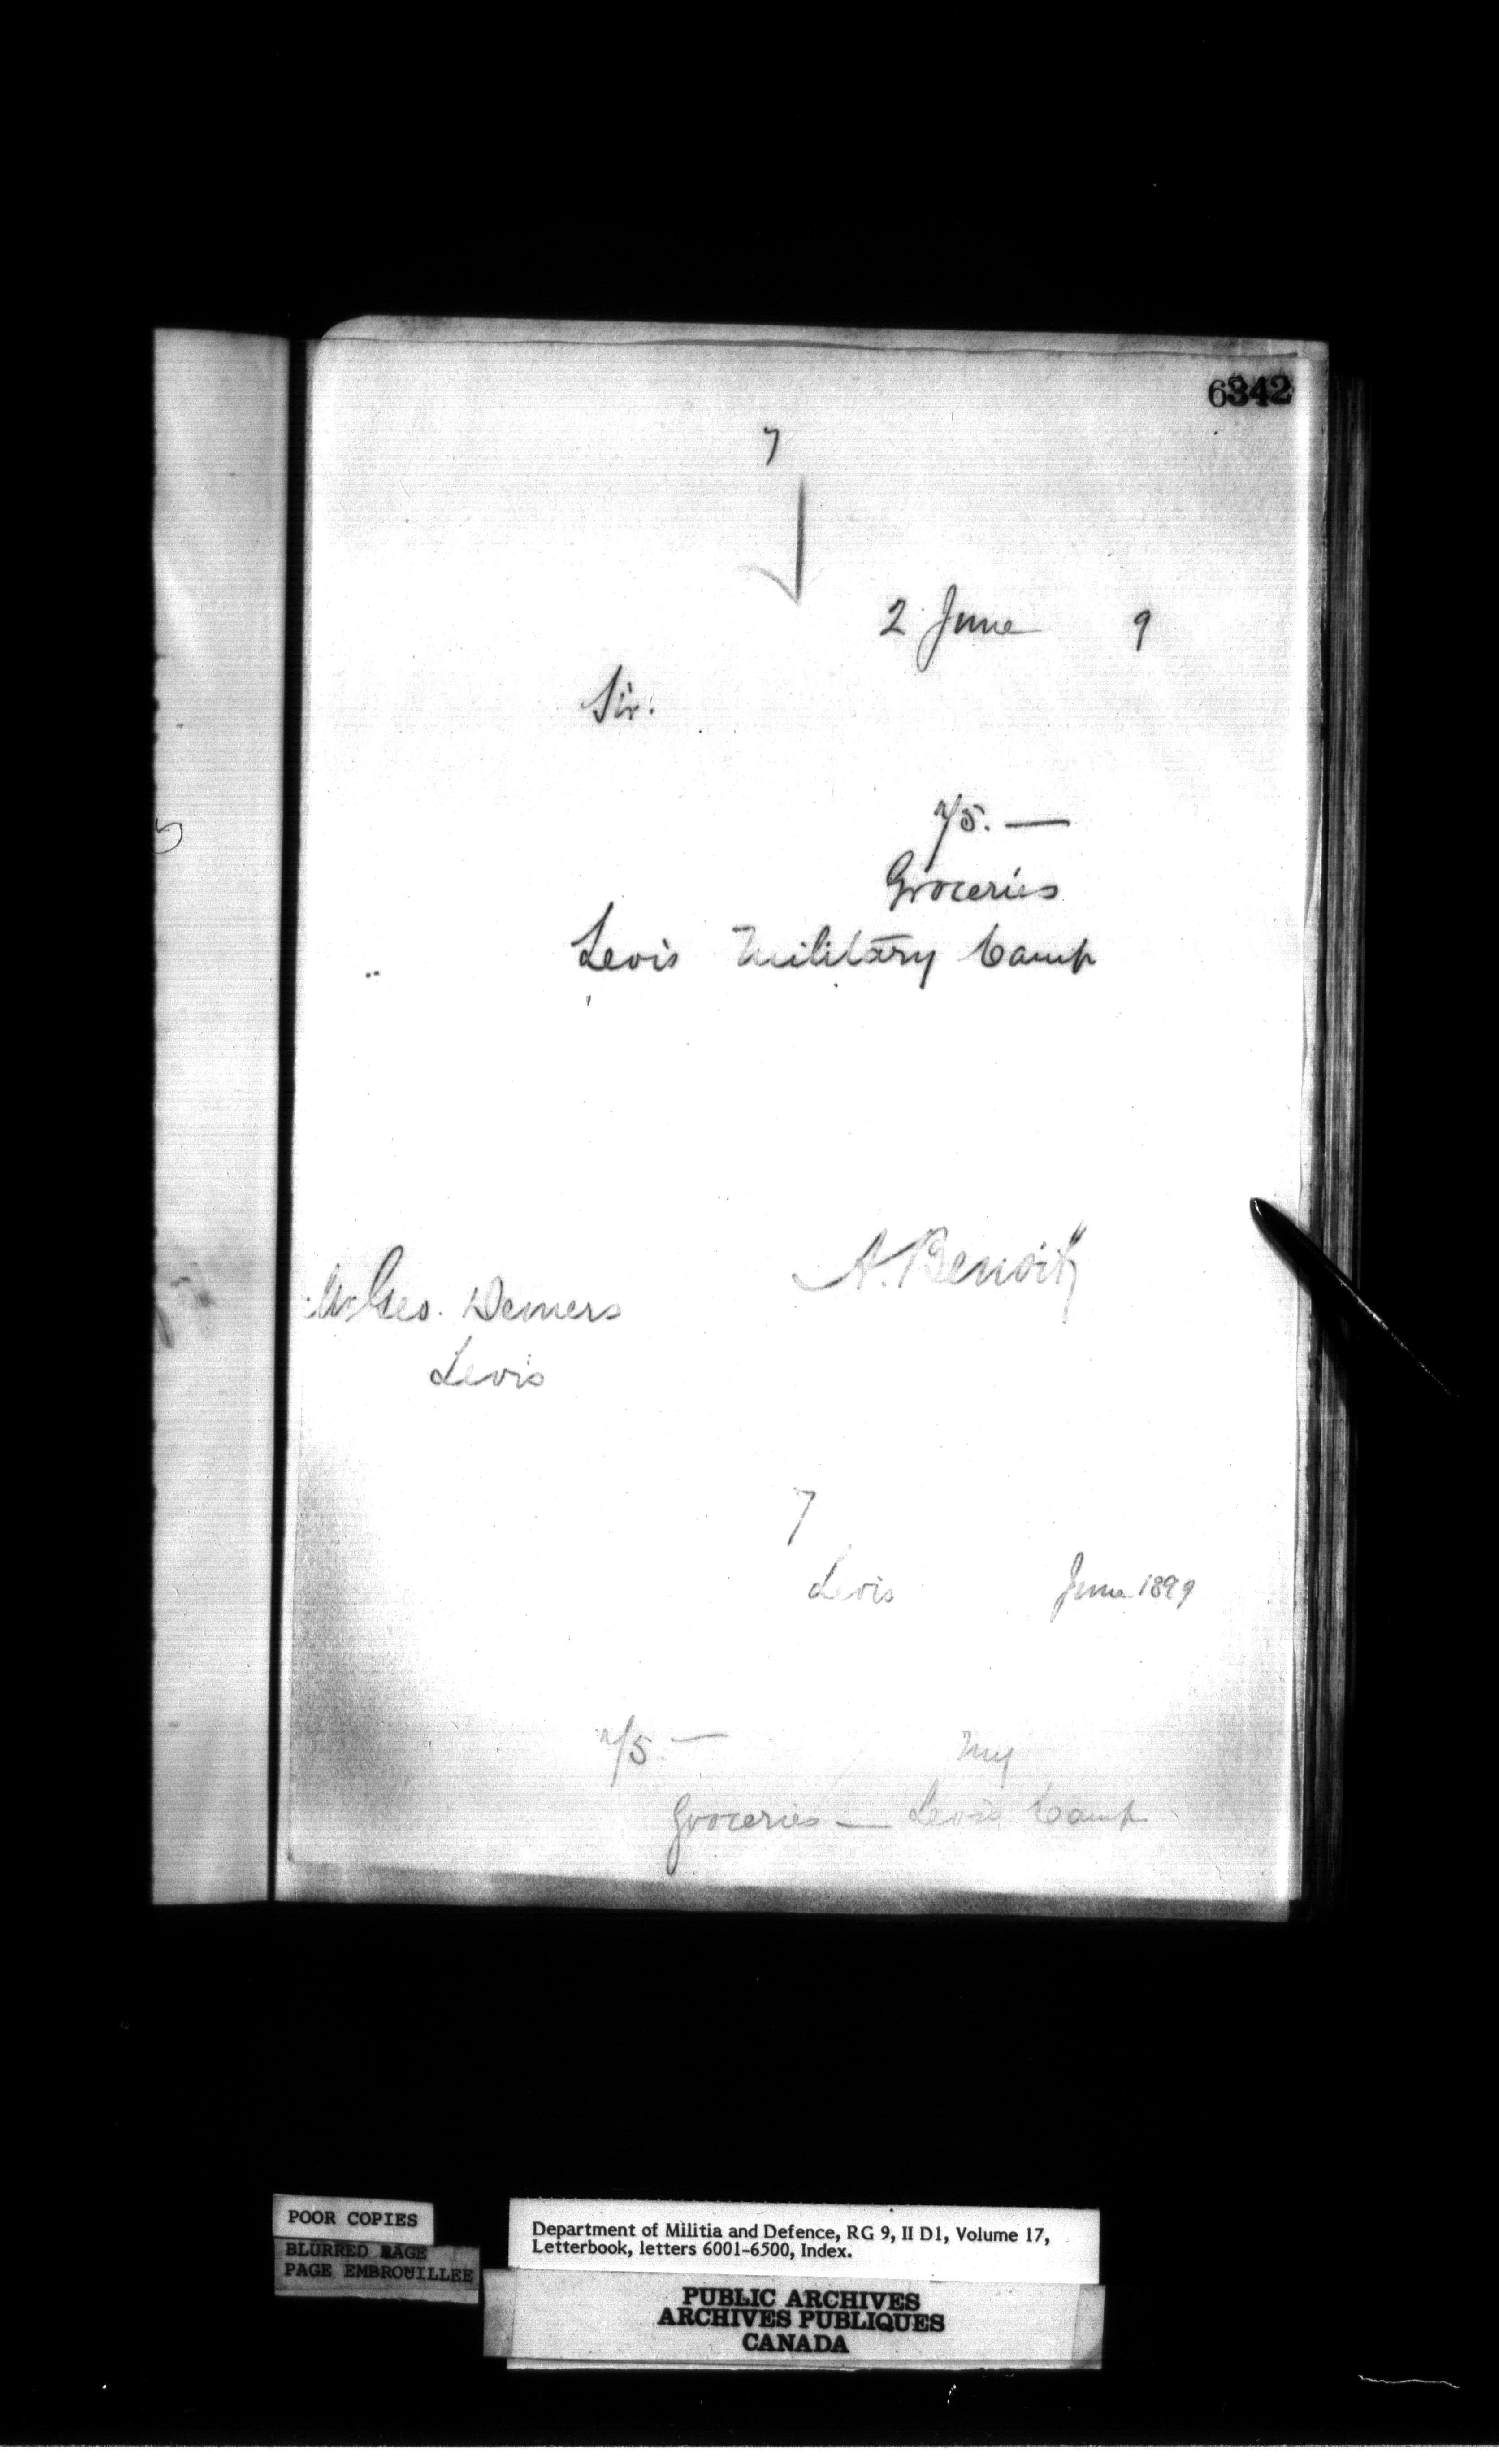 6342
7
2 June 9
Sir.
75. —
Groceries
Levis Military Camp
A. Benoit
Mr Geo. Demers
Levis
7
Levis June 1899
75. — My
Groceries — Levis Camp
POOR COPIES
BLURRED PAGE
PAGE EMBROUILLEE
Department of Militia and Defence, RG 9, II D1, Volume 17,
Letterbook, letters 6001-6500, Index.
PUBLIC ARCHIVES
ARCHIVES PUBLIQUES
CANADA